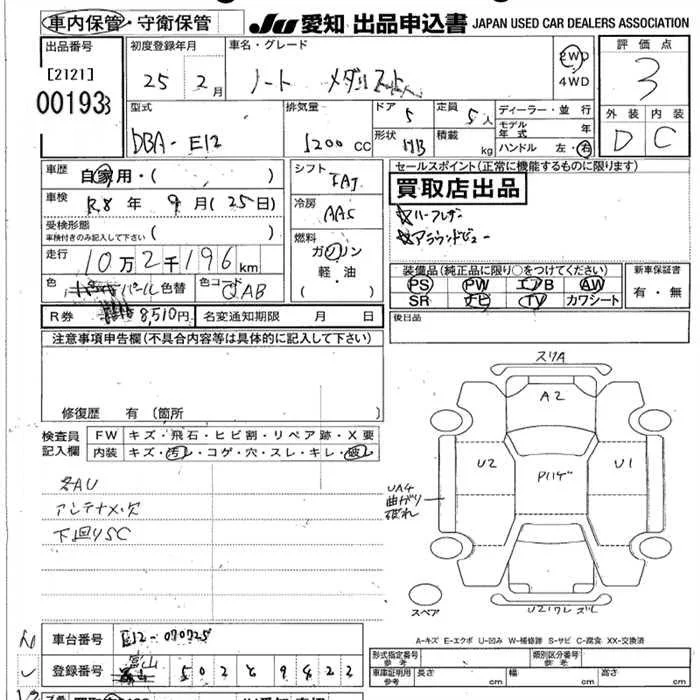 車内保管・守衛保管 JU 愛知 出品申込書 JAPAN USED CAR DEALERS ASSOCIATION
出品番号 初度登録年月 車名・グレード 評価点
[2121] 25年 2月 ノート メダリスト 2WD 3
00193 4WD
型式 排気量 ドア 定員 ディーラー・並行 外装 内装
DBA-E12 1200cc 5 5人 モデル年式 年 D C
形状 HB 積載 kg ハンドル 左・右
車歴 自家用・( ) シフト FAT セールスポイント(正常に機能するものに限ります)
車検 R8年 9月(25日) 冷房 AAC 買取店出品
受検形態 ( ) ☆ハーフレザー
車検付きのみ記入して下さい
燃料 ☆アラウンドビュー
走行 10万2千196km ガソリン
軽・油
( )
装備品(純正品に限り○をつけてください) 新車保証書
色 パール 色替 色コード QAB PS PW エアB AW 有・無
SR ナビ TV カワシート
R券 8,510円 名変通知期限 月 日 後日品
注意事項申告欄(不具合内容等は具体的に記入して下さい)
修復歴 有(箇所
検査員 FW キズ・飛石・ヒビ割・リペア跡・X要
記入欄 内装 キズ・汚れ・コゲ・穴・スレ・キレ・破レ
各AU
アンテナ欠
下回りSC
スリA
A2
U2 Pハゲ U1
UA4
曲がり
破れ
スペア
U2ワレズレ
A-キズ E-エクボ U-凹み W-補修跡 S-サビ C-腐食 XX-交換済
車台番号 E12-070725 型式指定番号 参考 類別区分番号 参考
登録番号 富山 502 と 9422 車庫証明用 参考 長さ cm 幅 cm 高さ cm